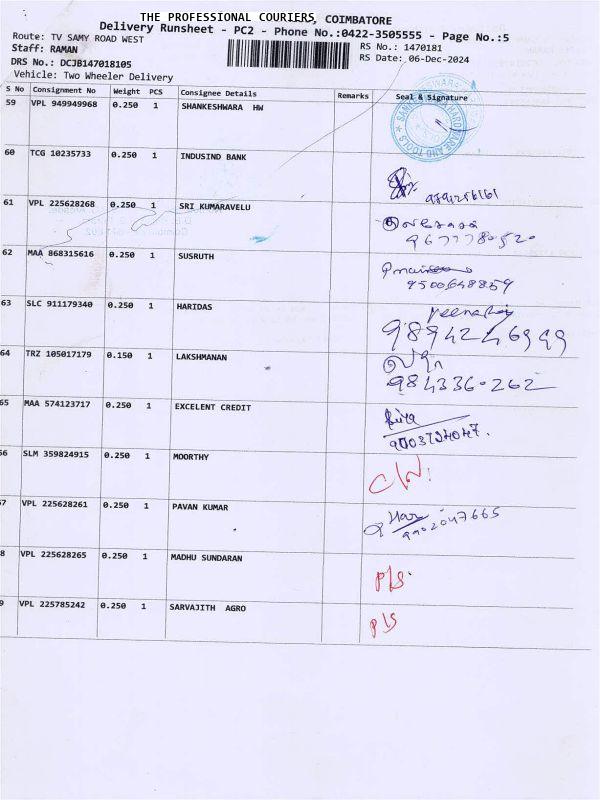 THE PROFESSIONAL COURIERS, COIMBATORE
Delivery Runsheet - PC2 - Phone No.:0422-3505555 - Page No.:5
Route: TV SAMY ROAD WEST
RS No.: 1470181
Staff: RAMAN
RS Date: 06-Dec-2024
DRS No.: DCJB147018105
Vehicle: Two Wheeler Delivery
S No Consignment No Weight PCS Consignee Details Remarks Seal & Signature
59 VPL 949949968 0.250 1 SHANKESHWARA HW
60 TCG 10235733 0.250 1 INDUSIND BANK
61 VPL 225628268 0.250 1 SRI KUMARAVELU
62 MAA 868315616 0.250 1 SUSRUTH
9500648859
63 SLC 911179340 0.250 1 HARIDAS
9894246999
64 TRZ 105017179 0.150 1 LAKSHMANAN
9843360262
65 MAA 574123717 0.250 1 EXCELENT CREDIT
66 SLM 359824915 0.250 1 MOORTHY
67 VPL 225628261 0.250 1 PAVAN KUMAR
9902047665
8 VPL 225628265 0.250 1 MADHU SUNDARAN
P/S
9 VPL 225785242 0.250 1 SARVAJITH AGRO
P/S